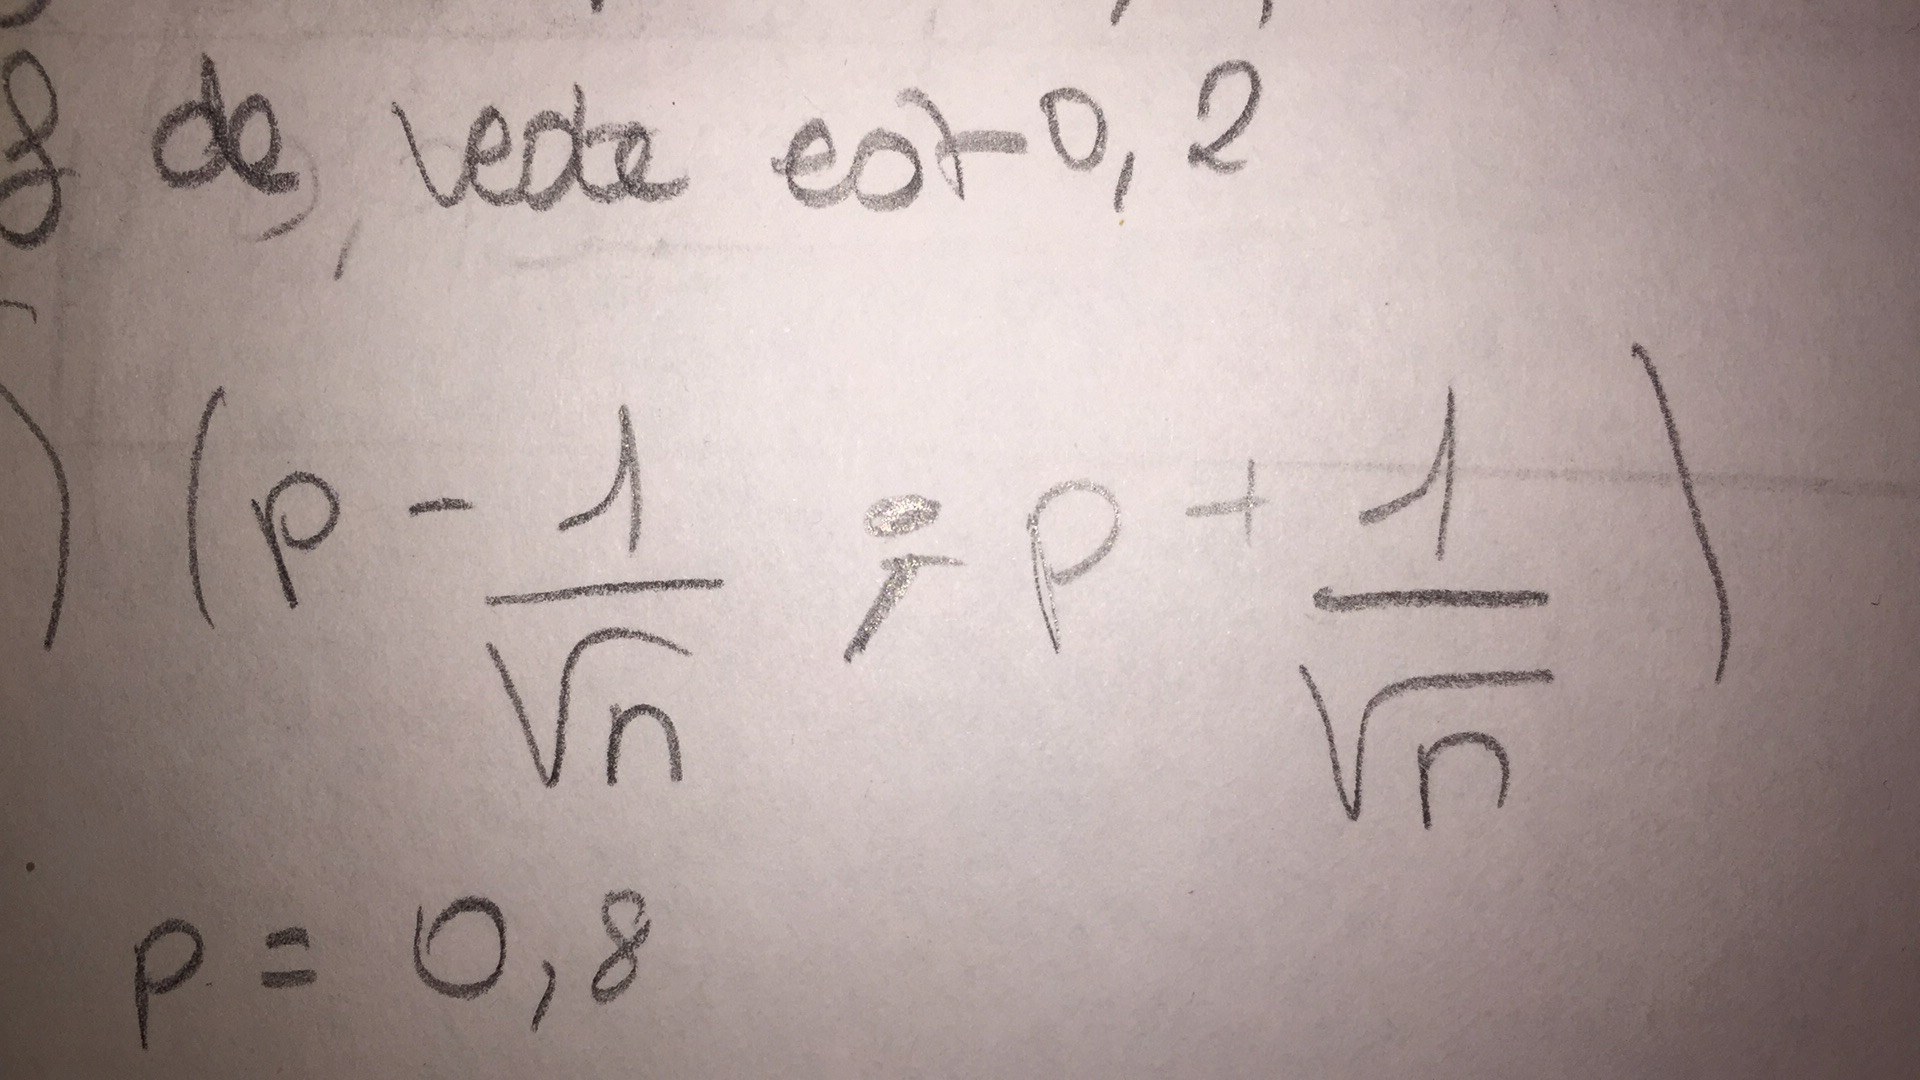 f de vente est 0,2
) (p - 1/√n ; p + 1/√n)
p = 0,8